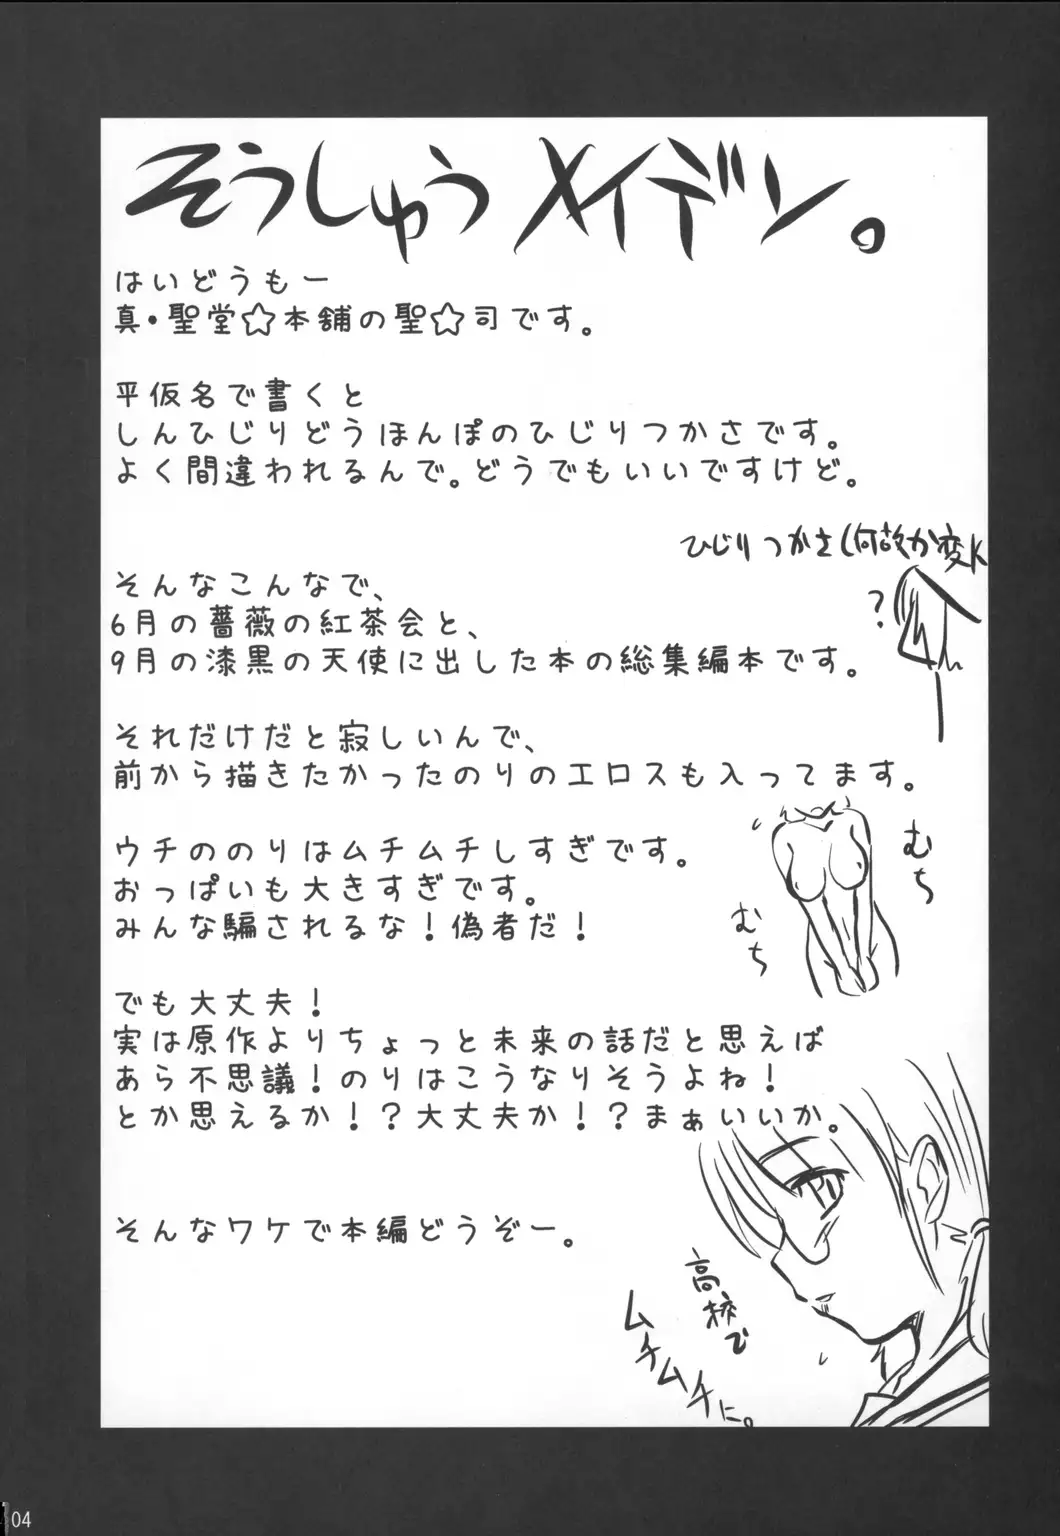 そうしゅうメイデン。
はいどうもー
真・聖堂☆本舗の聖☆司です。
平仮名で書くと
しんひじりどうほんぽのひじりつかさです。
よく間違われるんで。どうでもいいですけど。
ひじりつかさ(何故か変K
?
そんなこんなで、
6月の薔薇の紅茶会と、
9月の漆黒の天使に出した本の総集編本です。
それだけだと寂しいんで、
前から描きたかったのりのエロスも入ってます。
ウチののりはムチムチしすぎです。
おっぱいも大きすぎです。
みんな騙されるな!偽者だ!
むち
むち
でも大丈夫!
実は原作よりちょっと未来の話だと思えば
あら不思議!のりはこうなりそうよね!
とか思えるか!?大丈夫か!?まぁいいか。
そんなワケで本編どうぞー。
高校で
ムチムチに。
04